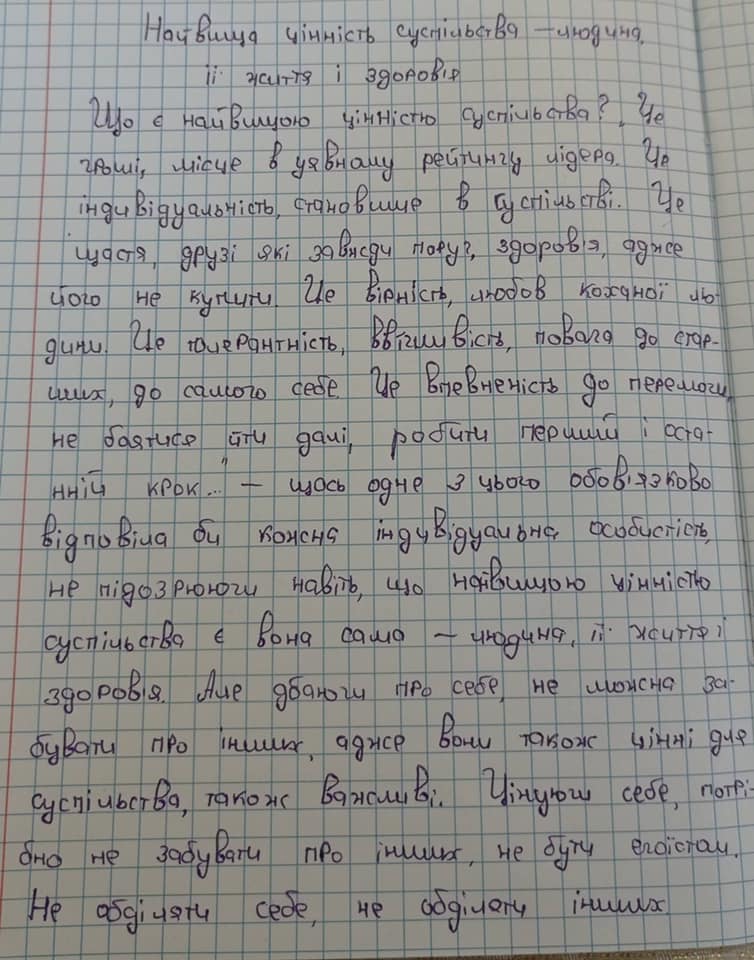 Найвища цінність суспільства – людина,
її життя і здоров'я
Що є найвищою цінністю суспільства? „Це
гроші, місце в уявному рейтингу лідера. Це
індивідуальність, становище в суспільстві. Це
щастя, друзі які завжди поруч, здоров'я, адже
його не купити. Це вірність, любов коханої лю-
дини. Це толерантність, ввічливість, повага до стар-
ших, до самого себе. Це впевненість до перемоги,
не боятися йти далі, робити перший і оста-
нній крок..." – щось одне з цього обов'язково
відповіла би кожна індивідуальна особистість,
не підозрюючи навіть, що найвищою цінністю
суспільства є вона сама – людина, її життя і
здоров'я. Але дбаючи про себе, не можна за-
бувати про інших, адже вони також цінні для
суспільства, також важливі. Цінуючи себе, потрі-
бно не забувати про інших, не бути егоїстом.
Не обділяти себе, не обділяти інших